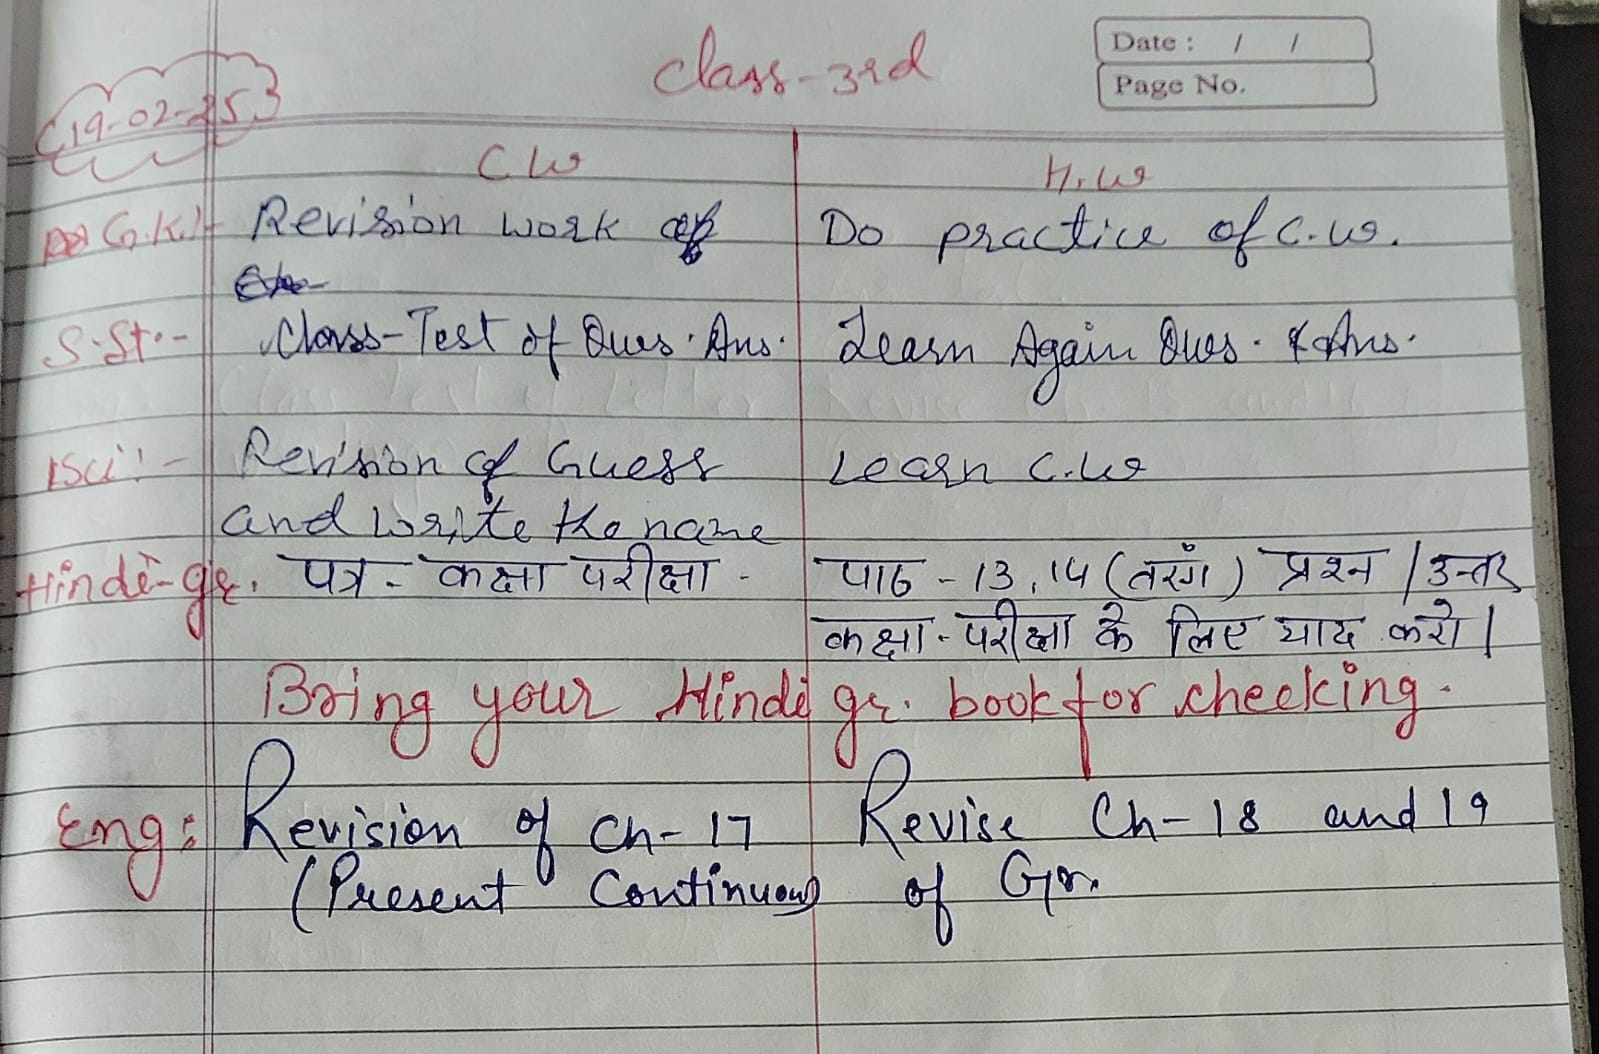 Class-3rd
Date : / /
Page No.
19-02-25
C.W H.W
G.K:- Revision work Do practice of C.W.
S.St:- Class-Test of Ques. Ans. Learn Again Ques. & Ans.
Sci:- Revision of Guess Learn C.W
and write the name
Hindi-gr. पत्र - कक्षा परीक्षा - पाठ - 13, 14 (तरंग) प्रश्न / उत्तर
कक्षा - परीक्षा के लिए याद करो।
Bring your Hindi gr. book for checking.
Eng: Revision of Ch-17 Revise Ch-18 and 19
(Present Continuous) of Gr.